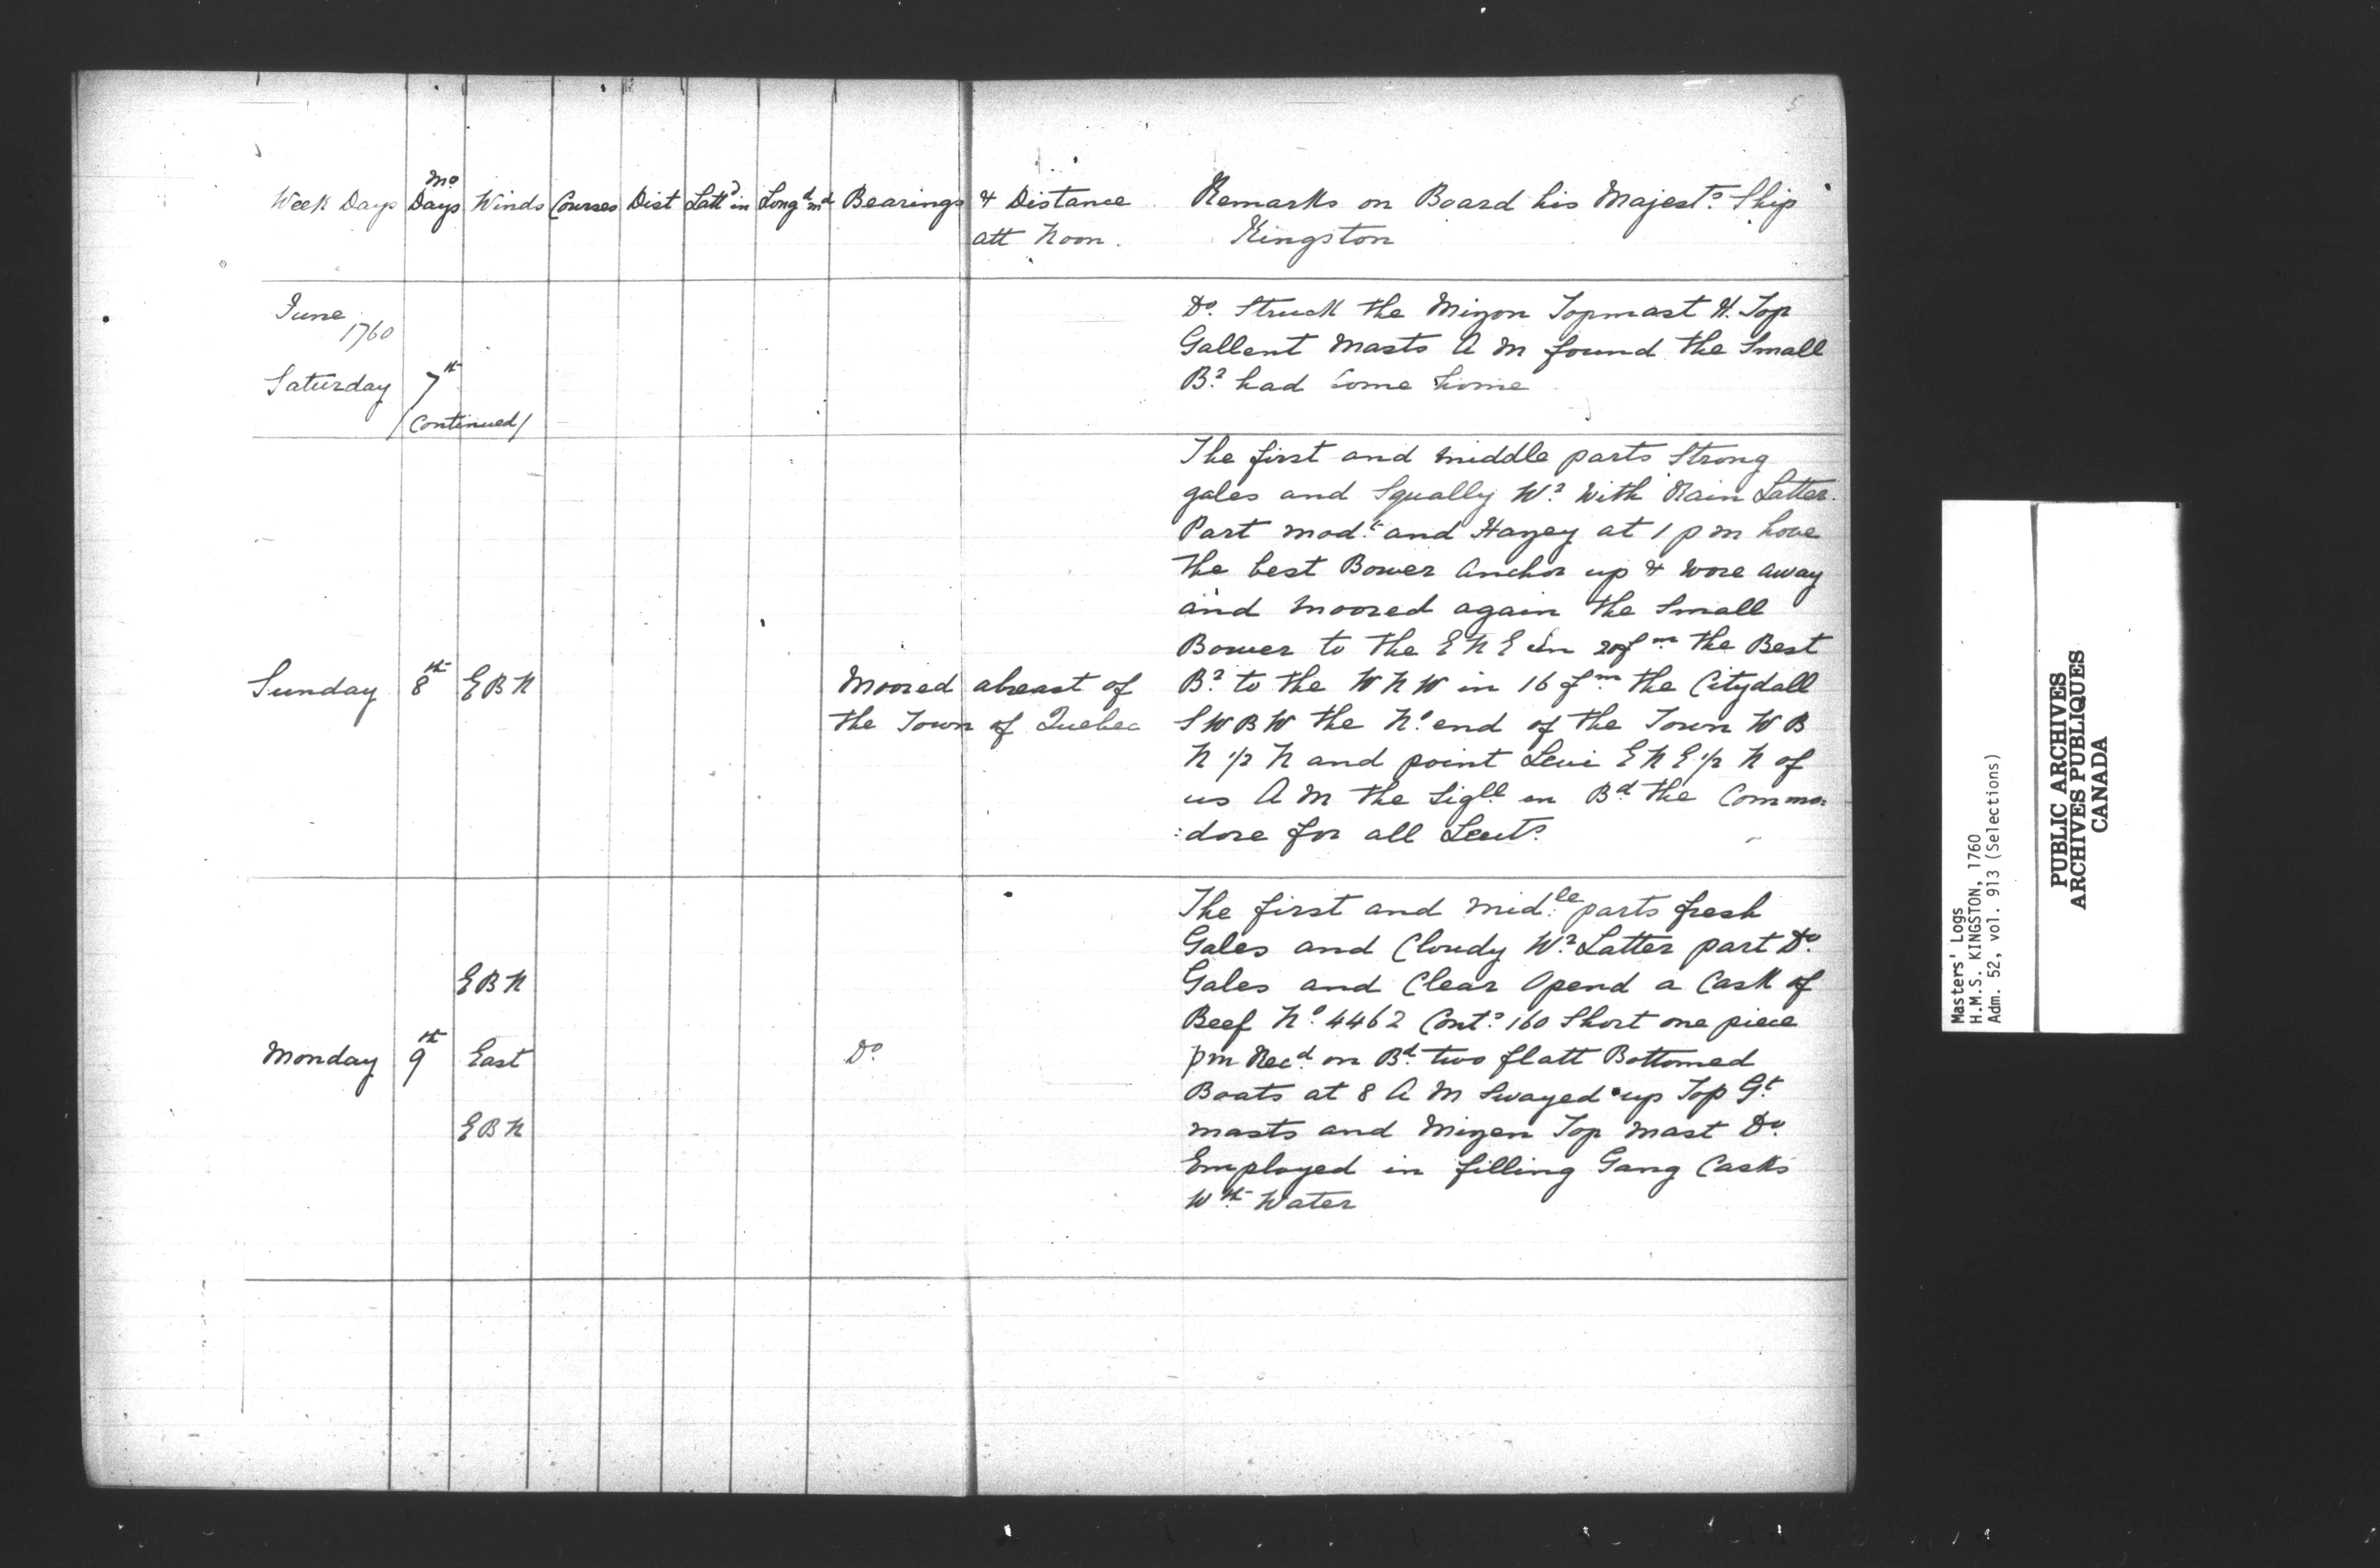 5
Week Days Mo Days Winds Courses Dist Lattd in Longd in Bearings & Distance att Noon.
Remarks on Board his Majests Ship
Kingston
June
1760
Saturday 7th
/Continued/
Do. Struck the Mizon Topmast & Top
Gallent Masts A M found the Small
Br. had come home
The first and middle parts Strong
gales and Squally Wr. with Rain Latter
Part modt. and Hazey at 1 pm hove
the best Bower Anchor up & wore away
and moored again the Small
Bower to the E N E in 20 fm the Best
Br. to the W N W in 16 fm. the Citydall
S W B W the No. end of the Town W B
N 1/2 N and point Levi E N E 1/2 N of
us A M the Sigll. on Bd. the Commo:
:dore for all Leuts.
Sunday 8th E B N
Moored abreast of
the Town of Quebec
The first and Mid:le parts fresh
Gales and Cloudy Wr. Latter part Do.
Gales and Clear Opend a Cask of
Beef No. 4462 Conts. 160 Short one piece
pm Recd. on Bd. two flatt Bottomed
Boats at 8 A M Swayed up Top Gt.
masts and Mizen Top Mast Do.
Employed in filling Gang Casks
Wth Water
E B N
Monday 9th East Do.
E B N
Masters' Logs
H.M.S. KINGSTON, 1760
Adm. 52, vol. 913 (Selections)
PUBLIC ARCHIVES
ARCHIVES PUBLIQUES
CANADA